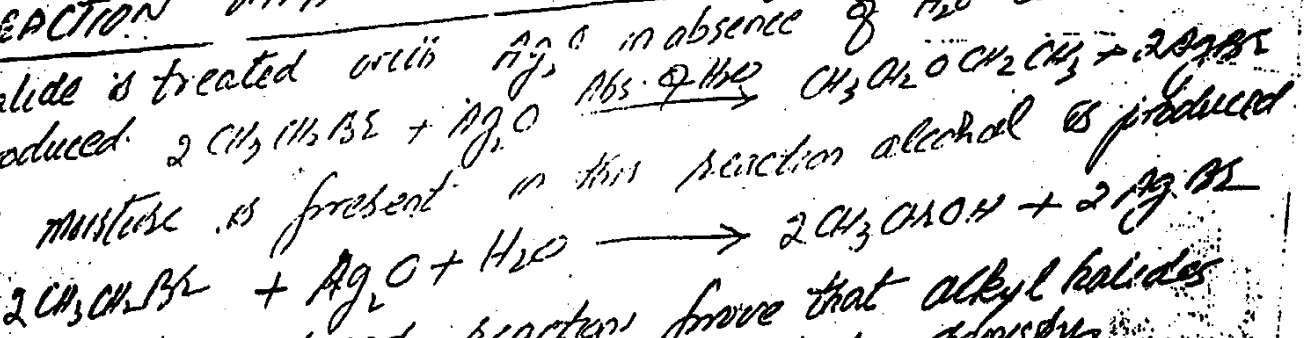 REACTION
alide is treated with Ag₂O in absence of H₂O
oduced. 2 CH₃CH₂Br + Ag₂O Abs. of H₂O → CH₃CH₂OCH₂CH₃ + 2AgBr
moisture is present in this reaction alcohol is produced
2CH₃CH₂Br + Ag₂O + H₂O → 2CH₃CH₂OH + 2AgBr
reactions prove that alkyl halides